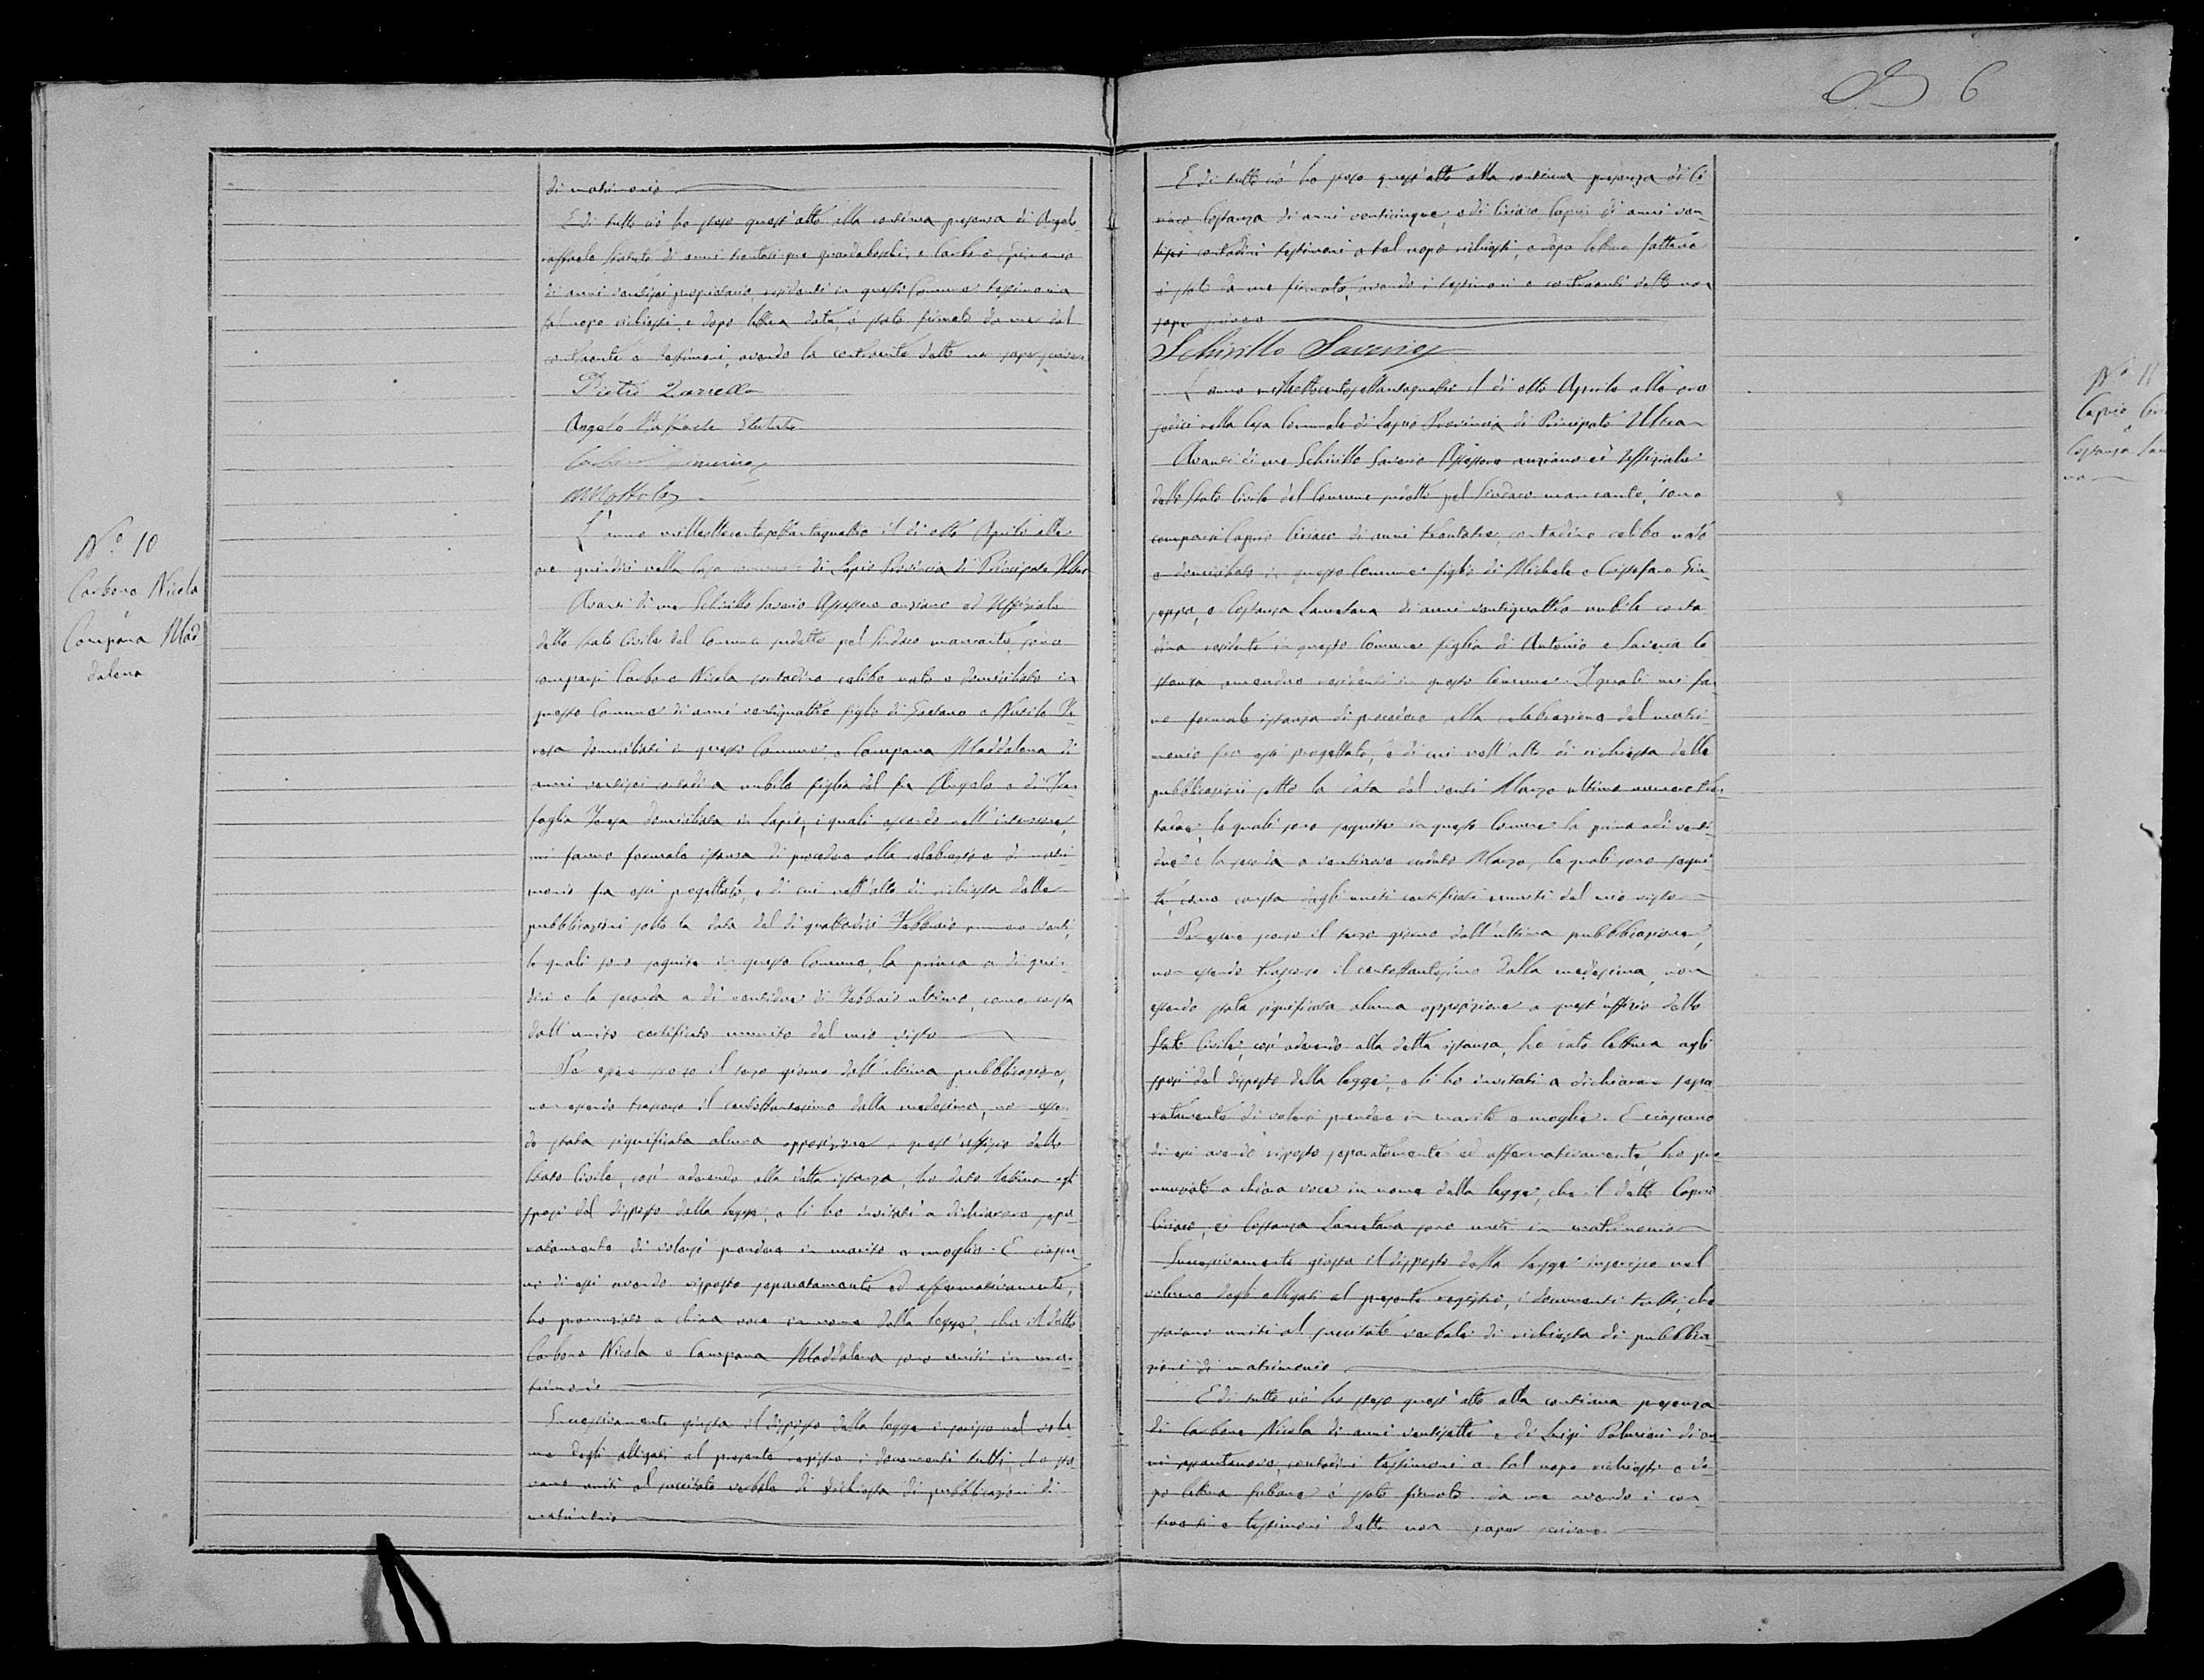 6
di matrimonio
E di tutto ciò ho steso quest'atto alla continua presenza di Angelo
raffaele Statuto di anni trentacinque guardaboschi, e Carbone
di anni ventisei proprietario, residenti in questo Comune testimoni a
tal uopo richiesti, e dopo lettura data, è stato firmato da me dal
contraente e testimoni, avendo la contraente detto non saper scrivere
Pietro Zarrella
Angelo Raffaele Statuto
N.º 10
Carbone Nicola
e
Campana Mad
dalena
L'anno milleottocentosettantaquattro il dì otto Aprile alle
ore quindici nella Casa comunale di Lapio Provincia di Principato Ultra
Avanti di me Schirillo Saverio Assessore anziano ed Uffiziale
dello Stato Civile del Comune sudetto pel Sindaco mancante, sono
comparsi Carbone Nicola contadino celibe nato e domiciliato in
questo Comune di anni ventiquattro figlio di Gaetano e
domiciliati in questo Comune, e Campana Maddalena di
anni ventisei contadina nubile figlia del fu Angelo e di
Teresa domiciliata in Lapio, i quali
mi fanno formale istanza di procedere alla celebrazione di matri
monio fra essi progettato, e di cui nell'atto di richiesta delle
pubblicazioni sotto la data del dì quattordici Febbraio numero venti,
le quali sono seguite in questo Comune, la prima a dì quin
dici e la seconda a dì ventidue di Febbraio ultimo, come costa
dall'unito certificato munito del mio visto
Per essere scorso il terzo giorno dell'ultima pubblicazione,
non essendo trascorso il centottantesimo dalla medesima, non essen
do stata significata alcuna opposizione a quest'uffizio dello
Stato Civile, così aderendo alla detta istanza, ho dato lettura agli
sposi del disposto della legge, e li ho invitati a dichiarare sepa
ratamente di volersi prendere in marito e moglie. E ciascu
no di essi avendo risposto separatamente ed affermativamente,
ho pronunziato a chiara voce in nome della legge, che il detto
Carbone Nicola e Campana Maddalena sono uniti in ma
trimonio
Successivamente giusta il disposto della legge inserisco nel volu
me degli alligati al presente registro i documenti tutti, che sta
vano uniti al succitato verbale di richiesta di pubblicazioni di
matrimonio
E di tutto ciò ho steso quest'atto alla continua presenza di Ci
riaco Costanza di anni venticinque, e di Ciriaco Caprio di anni ven
tisei contadini testimoni a tal uopo richiesti, e dopo lettura fattane
è stato da me firmato, avendo i testimoni e contraenti detto non
saper scrivere
Schirillo Saverio
N.º 11
Caprio
e
Costanza
L'anno milleottocentosettantaquattro il dì otto Aprile alle ore
sedici nella Casa Comunale di Lapio Provincia di Principato Ultra
Avanti di me Schirillo Saverio Assessore anziano ed Uffiziale
dello Stato Civile del Comune sudetto pel Sindaco mancante, sono
comparsi Caprio Ciriaco di anni trentatre, contadino celibe nato
e domiciliato in questo Comune figlio di Michele e Cristofaro Giu
seppa, e Costanza Lauretana di anni ventiquattro nubile conta
dina residente in questo Comune figlia di Antonio e Saveria Co
stanza amendue residenti in questo Comune. I quali mi fan
no formale istanza di procedere alla celebrazione del matri
monio fra essi progettato, e di cui nell'atto di richiesta delle
pubblicazioni sotto la data del venti Marzo ultimo numero tren
le quali sono seguite in questo Comune la prima a dì venti
due e la seconda a ventinove caduto Marzo, le quali sono segui
te, come consta dagli uniti certificati muniti del mio visto
Per essere scorso il terzo giorno dall'ultima pubblicazione,
non essendo trascorso il centottantesimo dalla medesima, non
essendo stata significata alcuna opposizione a quest'uffizio dello
Stato Civile, così aderendo alla detta istanza, ho dato lettura agli
sposi del disposto della legge, e li ho invitati a dichiarare sepa
ratamente di volersi prendere in marito e moglie. E ciascuno
di essi avendo risposto separatamente ed affermativamente, ho pro
nunziato a chiara voce in nome della legge, che il detto Caprio
Ciriaco, e Costanza Lauretana sono uniti in matrimonio
Successivamente giusta il disposto della legge inserisco nel
volume degli alligati al presente registro, i documenti tutti, che
stavano uniti al succitato verbale di richiesta di pubblica
zioni di matrimonio
E di tutto ciò ho steso quest'atto alla continua presenza
di Carbone Nicola di anni ventisette e di Luigi di an
ni contadini testimoni a tal uopo richiesti e do
po lettura fattane è stato firmato da me avendo i con
traenti e testimoni detto non saper scrivere